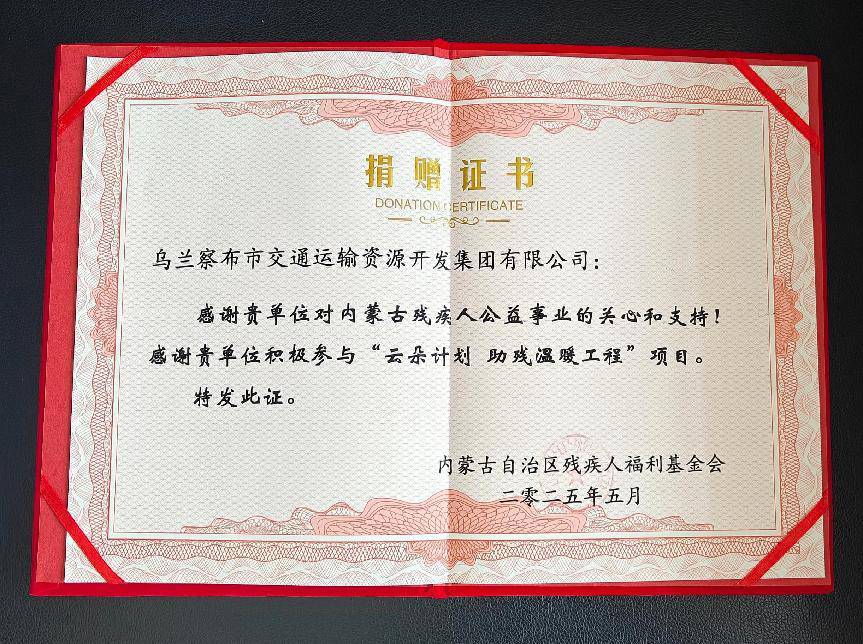 捐赠证书
DONATION CERTIFICATE
乌兰察布市交通运输资源开发集团有限公司：
感谢贵单位对内蒙古残疾人公益事业的关心和支持！
感谢贵单位积极参与“云朵计划 助残温暖工程”项目。
特发此证。
内蒙古自治区残疾人福利基金会
二零二五年五月